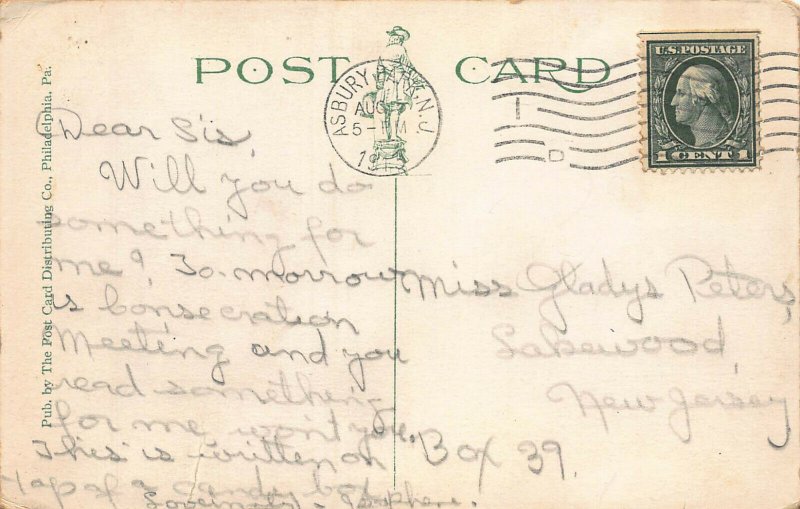 POST CARD
U.S. POSTAGE
1 CENT 1
ASBURY PARK, N.J.
AUG
5-PM
Pub. by The Post Card Distributing Co., Philadelphia, Pa.
Dear Sis,
Will you do
something for
me? To-morrow
is Consecration
Meeting and you
read something
for me won't you.
This is written on
top of a candy box
Miss Gladys Peters,
Lakewood,
New Jersey
Box 39.